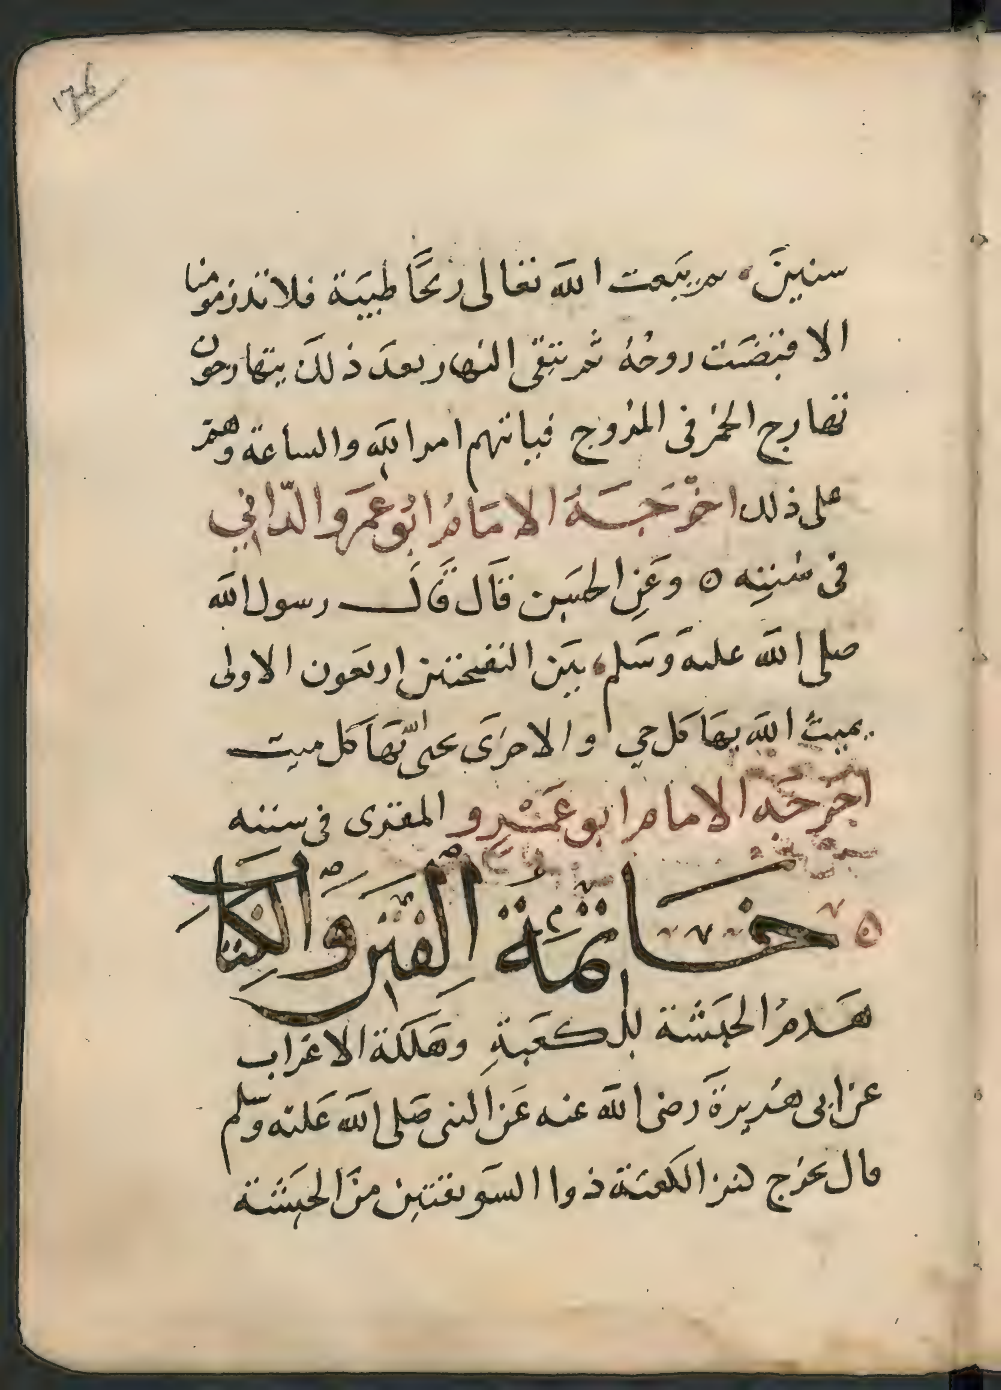 ١٧٤
سنين ثم يبعث الله تعالى ريحا طيبة فلا تذر مومنا
الا قبضت روحه ثم تبقى النهار بعد ذلك يتهارجون
تهارج الحمر فى المروج فياتيهم امر الله والساعة وهم
على ذلك اخرجه الامام ابو عمرو الدانى
فى سننه ٥ وعن الحسن قال قال رسول الله
صلى الله عليه وسلم بين النفختين اربعون الاولى
يميت الله بها كل حي والاخرى يحى الله بها كل ميت
اخرجه الامام ابو عمرو المقرى فى سننه
٥ خاتمة الفتن والكتاب
هدم الحبشة للكعبة وهلكة الاعراب
عن ابى هريرة رضى الله عنه عن النبى صلى الله عليه وسلم
قال يخرج كنز الكعبة ذوا السويقتين من الحبشة